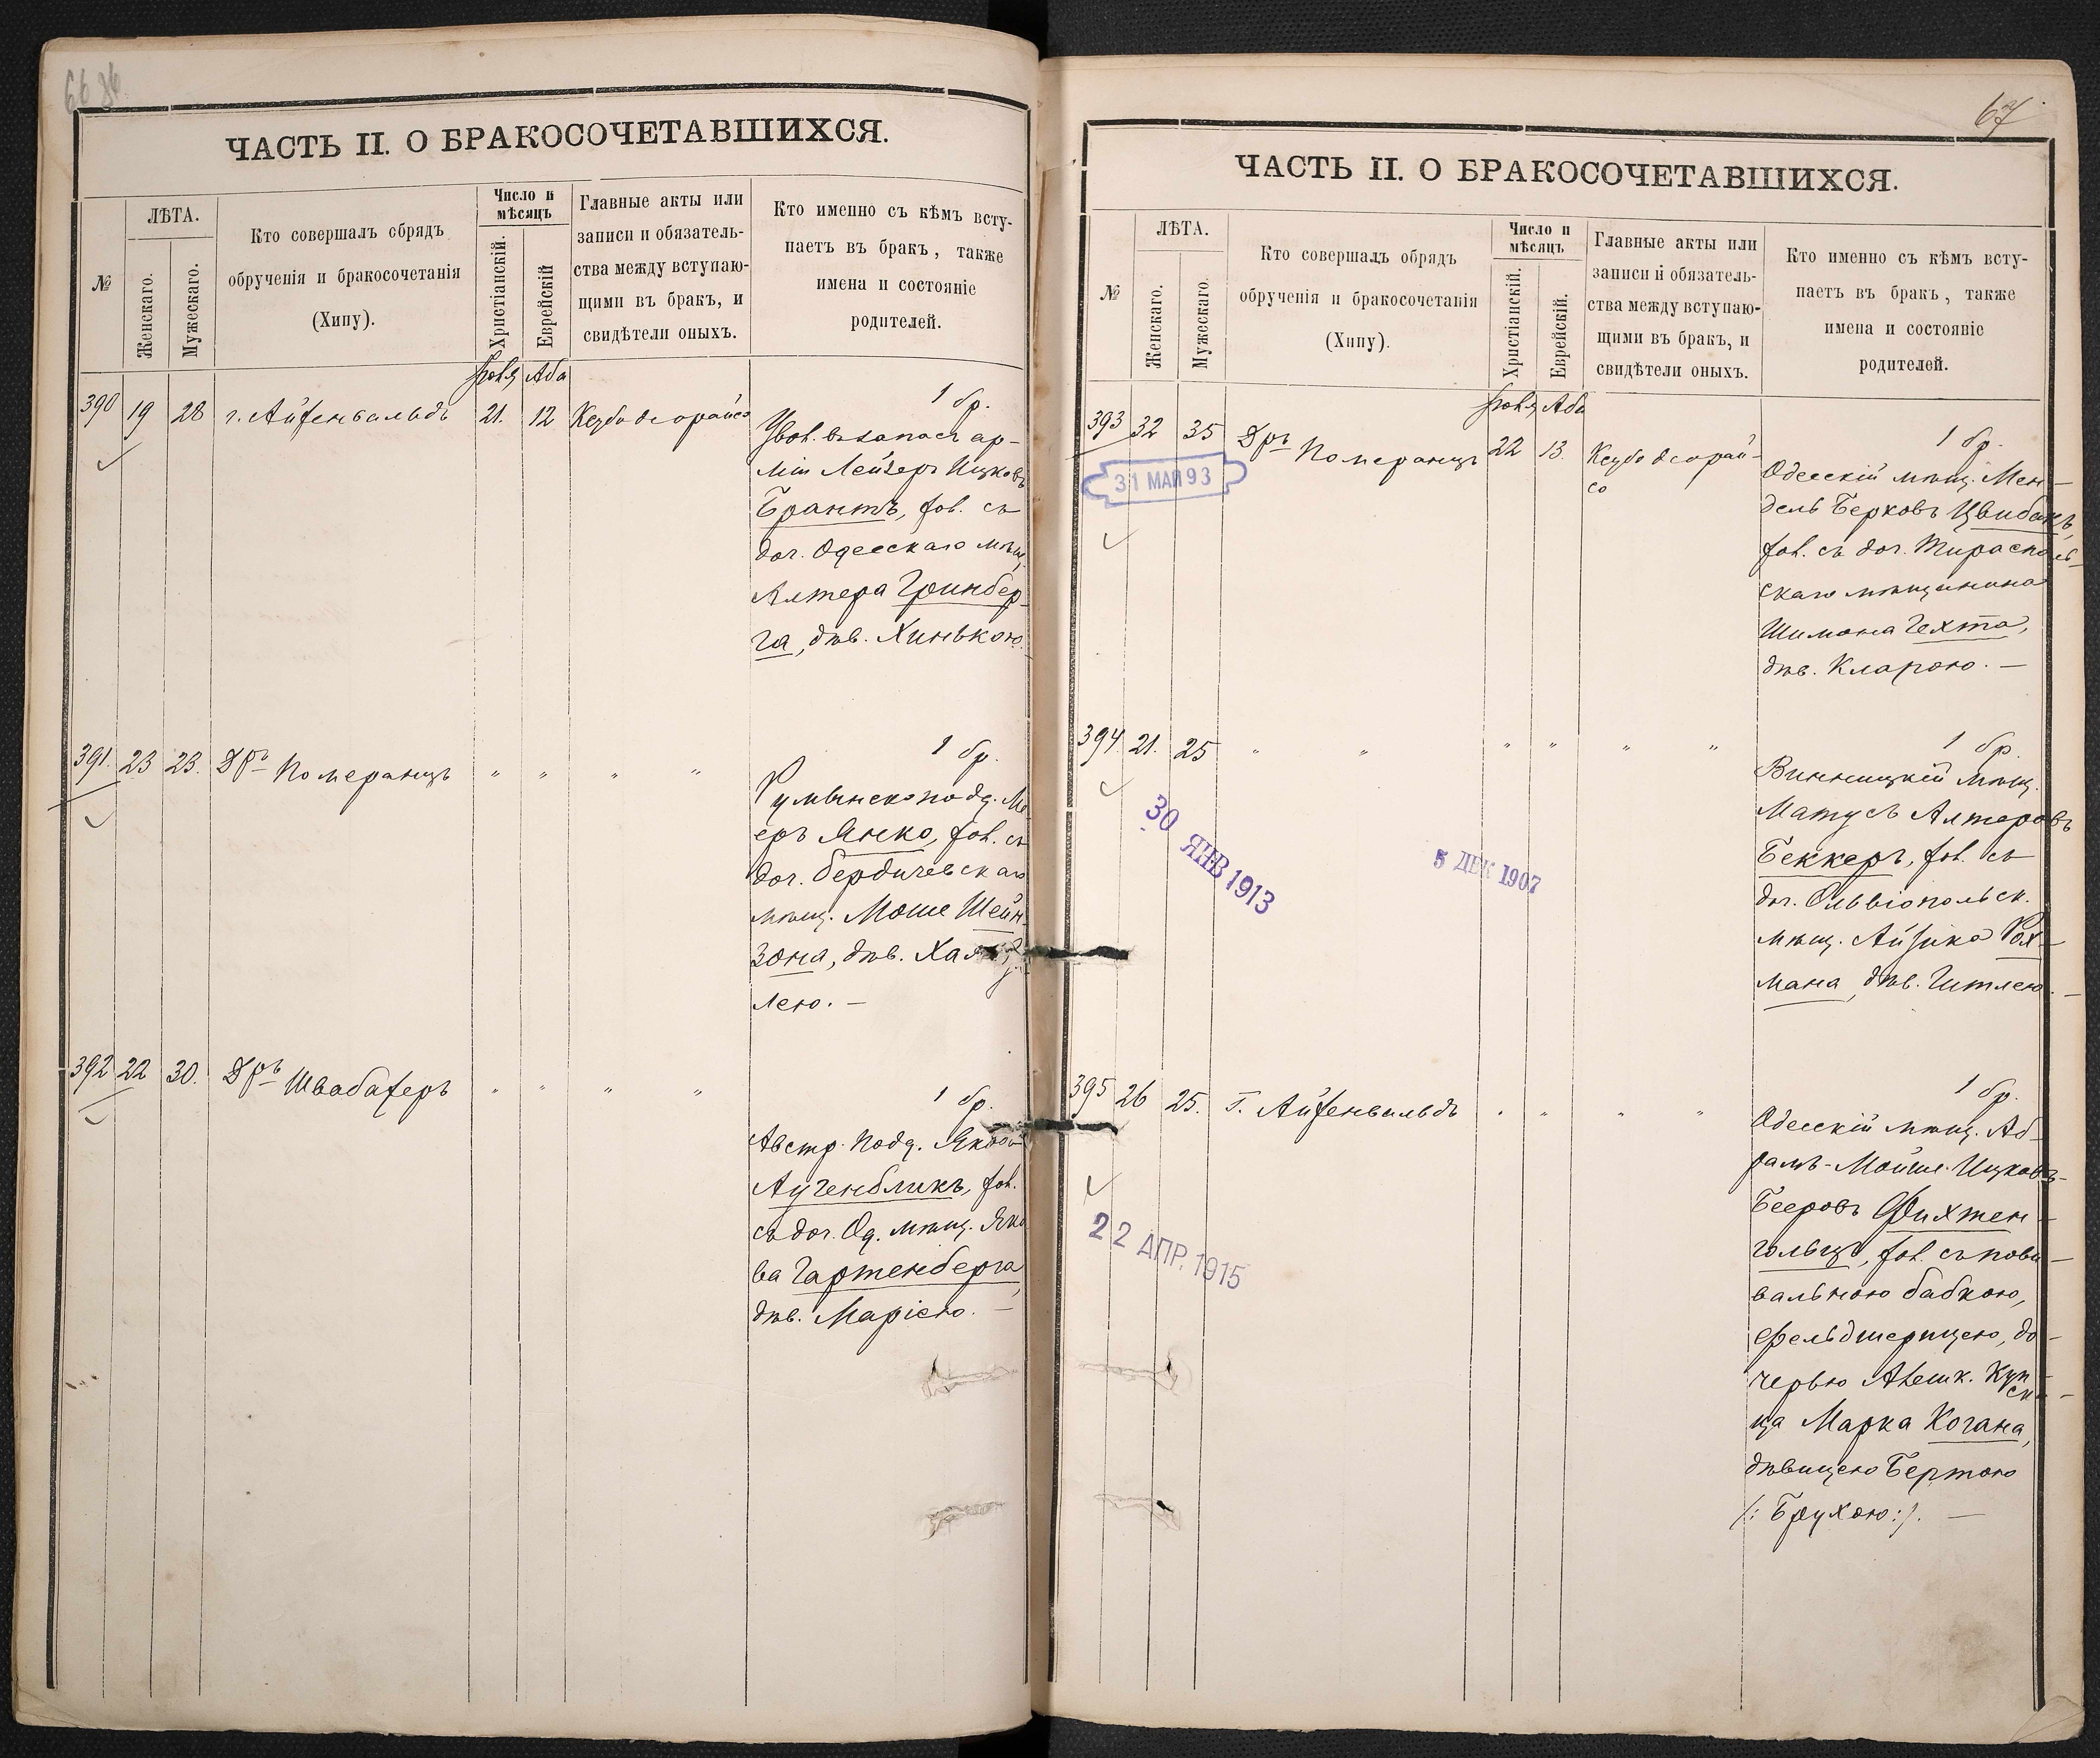 66 об.
ЧАСТЬ II. О БРАКОСОЧЕТАВШИХСЯ.
№
ЛѢТА.
Женскаго.
Мужескаго.
Кто совершалъ обрядъ
обрученія и бракосочетанія
(Хипу).
Число и
мѣсяцъ
Христіанскій.
Еврейскій
Главные акты или
записи и обязатель-
ства между вступаю-
щими въ бракъ, и
свидѣтели оныхъ.
Кто именно съ кѣмъ всту-
паетъ въ бракъ, также
имена и состояніе
родителей.
Іюля Аба
390 19 28 г. Айзенвальдъ 21. 12 Ксубо деорайсо
1 бр.
Увол. въ запасъ ар-
міи Лейзеръ Ицковъ
Брантъ, хол. съ
доч. Одесскаго мѣщ.
Алтера Гринбер-
га, дѣв. Хинькою.
391. 23 23. Дръ Померанцъ " " " "
1 бр.
Румынско подд. Ме
еръ Янко, хол. съ
доч. Бердичевскаго
мѣщ. Моше Шейн-
зона, дѣв.
лею. —
392 22 30. Дръ Швабахеръ " " " "
1 бр.
Австр. подд. Якобъ
Аугенбликъ, хол.
съ доч. Од. мѣщ. Яко
ва Гартенберга,
дѣв. Маріею. —
67
ЧАСТЬ II. О БРАКОСОЧЕТАВШИХСЯ.
№
ЛѢТА.
Женскаго.
Мужескаго.
Кто совершалъ обрядъ
обрученія и бракосочетанія
(Хипу).
Число и
мѣсяцъ
Христіанскій.
Еврейскій.
Главные акты или
записи и обязатель-
ства между вступаю-
щими въ бракъ, и
свидѣтели оныхъ.
Кто именно съ кѣмъ всту-
паетъ въ бракъ, также
имена и состояніе
родителей.
Іюля Аба
393 32 35 Дръ Померанцъ 22 13. Ксубо деорай-
со
31 МАЙ 93
1 бр.
Одесскій мѣщ. Мен-
дель Берковъ Цвибакъ,
хол. съ доч. Тирасполь-
скаго мѣщанина
Шимона Гехта,
дѣв. Кларою. —
394 21. 25 " " " " " "
1 бр.
Винницкій мѣщ.
Матусъ Алтеровъ
Беккеръ, хол. съ
доч. Ольвіопольск.
мѣщ. Айзика Рох-
мана, дѣв. Гитлею. —
30 ЯНВ 1913
5 ДЕК 1907
395 26 25. Г. Айзенвальдъ " " " "
1 бр.
Одесскій мѣщ. Аб-
рамъ-Мойше Ицковъ-
Бееровъ Фихтен-
гольцъ, хол. съ пови-
вальною бабкою,
фельдшерицею, до-
черью Алешк. куп-
ца Марка Когана,
дѣвицею Бертою
/: Брухою :/. —
22 АПР. 1915